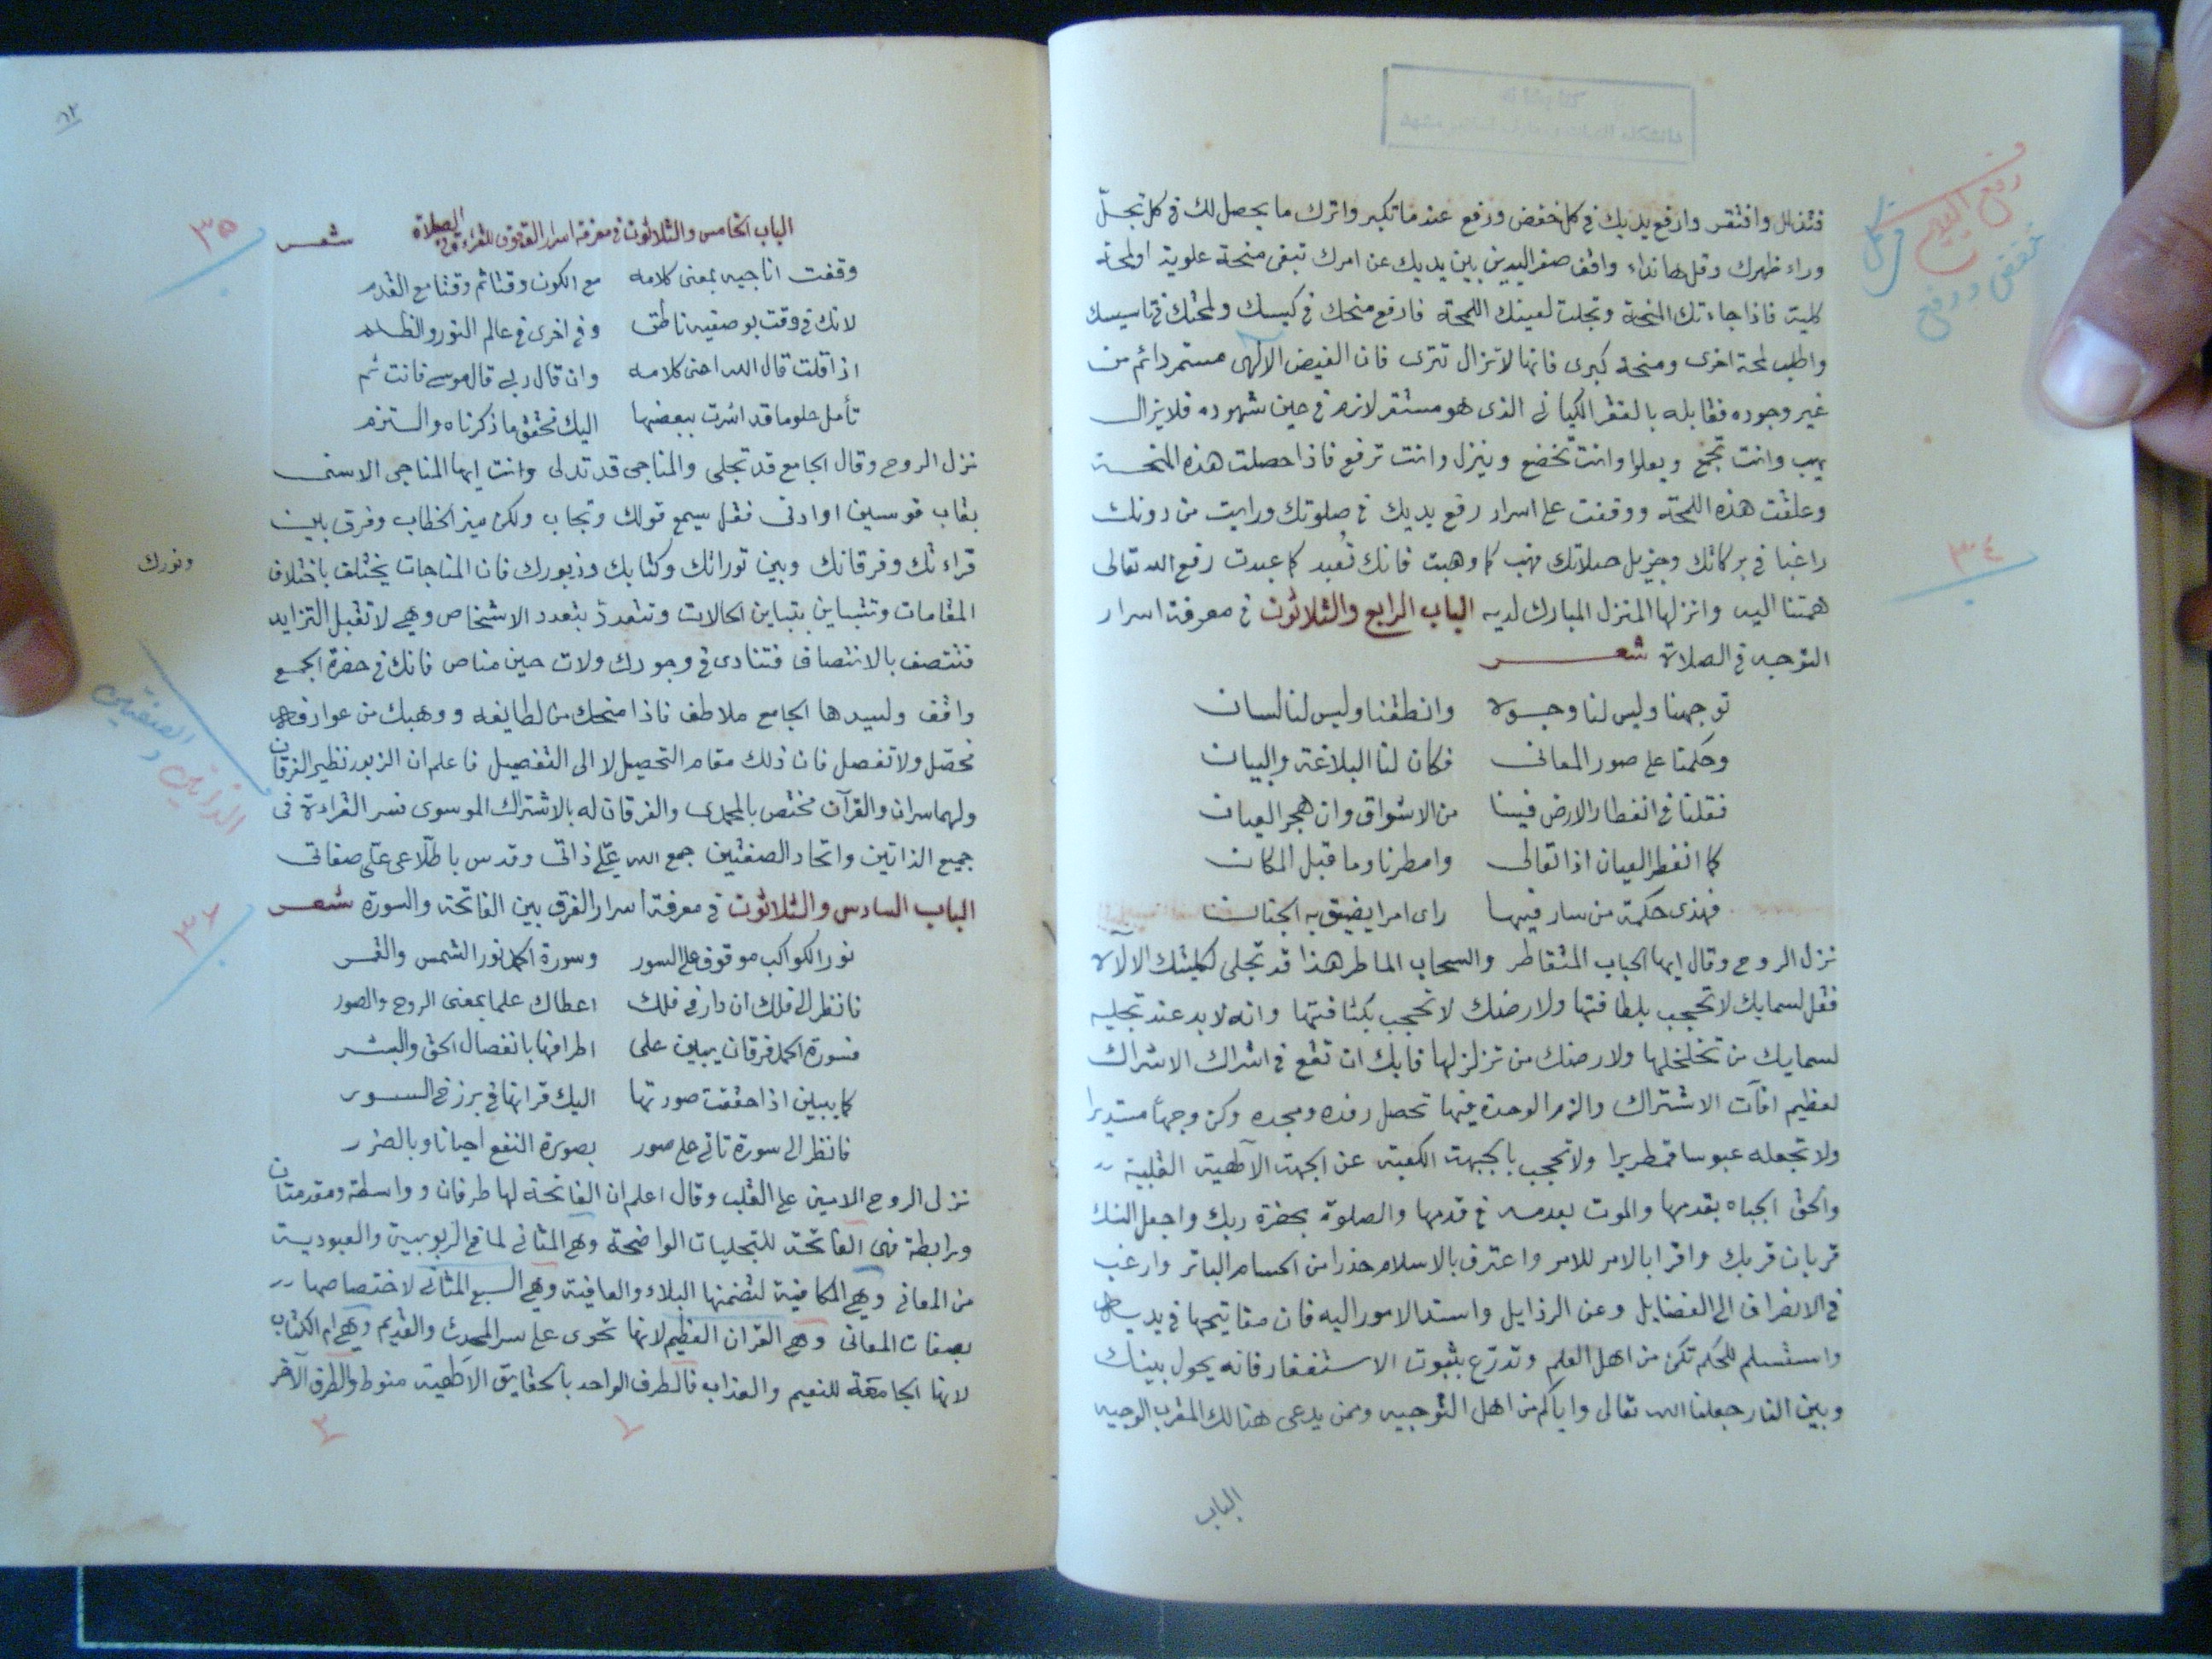 فتذلل وافتقر وارفع يديك في كل خفض ورفع عند ما تكبر واترك ما يحصل لك في كل تجلّ
وراء ظهرك وقل ها نداء واقف صفر اليدين بين يديك عن امرك تبغى منحة علوية او لمحة
كلية فاذا جاءتك المنحة وتجلت لعينك اللمحة فارفع منحك في كيسك ولمحتك في تاسيسك
واطلب لمحة اخرى ومنحة كبرى فانها لا تزال تترى فان الفيض الالهى مستمر دائم من
غير وجوده فقابله بالفقر الكيانى الذى هو مستقر لازم في حين شهوده فلا يزال
يهب وانت تجمع ويعلو وانت تخضع وينزل وانت ترفع فاذا حصلت هذه المنحة
وعلقت هذه اللمحة ووقفت على اسرار رفع يديك في صلوتك ورايت من دونك
راغبا في بركاتك وجزيل صلاتك فهب كما وهبت فانك تُعبد كما عبدت رفع الله تعالى
همتنا اليه وانزلها المنزل المبارك لديه الباب الرابع والثلاثون في معرفة اسرار
التوجه في الصلاة شعر
توجهنا وليس لنا وجوه وانطقنا وليس لنا لسان
وحكمنا على صور المعانى فكان لنا البلاغة والبيان
فقلنا في انفطار الارض فينا من الاشواق وان هجر العيان
كما انفطر العيان اذا تعالى وامطرنا وما قبل المكان
فهذى حكمة من سار فيها راى امرا يضيق به الجنان
نزل الروح وقال ايها الحباب المتقاطر والسحاب الماطر هذا قد تجلى لكليتك الالآه
فقل لسمايك لا تحجب بلطافتها ولارضك لا تحجب بكثافتها وانه لا بد عند تجليه
لسمايك من تخلخلها ولارضك من تزلزلها فاياك ان تقع في اشراك الاشراك
لعظيم افآت الاشتراك والزم الوحدة فيها تحصل رفده ومجده وكن وجهاً مستديرا
ولا تجعله عبوسا قمطريرا ولا تحجب بالجبهة الكعبة عن الجهة الآلهية القلبية
والحق الجباه بقدمها والموت بعدمه في قدمها والصلوة بحضرة ربك واجعل النك
قربان قربك واقرا بالامر للامر واعترف بالاسلام حذرا من الحسام الباتر وارغب
في الانصراف الى الفضايل وعن الرذايل واسند الامور اليه فان مفاتيحها في يديه
واستسلم للحكم تكن من اهل العلم وتدرّع بثبوت الاستغفار فانه يحول بينك
وبين النار جعلنا الله تعالى واياكم من اهل التوجيه وممن يدعى هنالك المقرب الوجيه
الباب
رفع اليدين
في كل
خفض ورفع
٣٤
٦٢
الباب الخامس والثلاثون في معرفة اسرار الوقوف للقراءة في الصلاة شعر
وقفت اناجيه بمعنى كلامه مع الكون وقتا ثم وقتا مع القدم
لانك في وقت بوصفيه ناطق وفي اخرى في عالم النور والظلم
اذا قلت قال الله احنى كلامه وان قال ربي قال موسى فانت ثم
تأمل علوما قد اشرت ببعضها اليك فحقق ما ذكرناه والتزم
نزل الروح وقال الجامع قد تجلى والمناجى قد تدلى وانت ايها المناجى الاسنى
بقاب قوسين او ادنى فقل يسمع قولك وتجاب ولكن ميز الخطاب وفرق بين
قراءتك وفرقانك وبين توراتك وكتابك وزبورك فان المناجات يختلف باختلاف
ونورك
المقامات وتتباين بتباين الحالات وتتعدد بتعدد الاشخاص وهي لا تقبل التزايد
فتتصف بالانتصاف فتنادى في وجودك ولات حين مناص فانك في حضرة الجمع
واقف ولسيدها الجامع ملاطف فاذا منحك من لطايفه ووهبك من عوارفه
فحصّل ولا تفصل فان ذلك مقام التحصيل لا الى التفصيل فاعلم ان الزبور نظير الفرقان
ولهما سران والقرآن مختص بالمحمدى والفرقان له بالاشتراك الموسوى فسر القراءة فى
جميع الذاتين واتحاد الصفتين جمع الله علّى ذاتى وقدس باطلّاعى علّى صفاتى
الباب السادس والثلاثون في معرفة اسرار الفرق بين الفاتحة والسورة شعر
نور الكواكب موقوف على السور وسورة الحمد نور الشمس والقمر
فانظر الى فلك ان دار في فلك اعطاك علما بمعنى الروح والصور
فسورة الحمد فرقان يبين على اطرافها بانفصال الحق والبشر
كما يبين اذا حققت صورتها اليك قرانها في برزخ السور
فانظر الى سورة تاتى على صور بصورة النفع احيانا وبالضرر
نزل الروح الامين على القلب وقال اعلم ان الفاتحة لها طرفان وواسطة ومقدمتان
ورابطة فهى الفاتحة للتجليات الواضحة وهي المثانى لما في الربوبية والعبودية
من المعانى وهي الكافية لتضمنها البلاء والعافية وهي السبع المثانى لاختصاصها
بصفات المعانى وهي القران العظيم لانها تحوى على سر المحدث والقديم وهي ام الكتاب
لانها الجامعة للنعيم والعذاب فالطرف الواحد بالحقايق الالهية منوط والطرف الآخر
٣٥
الذاتين و
الصفتين
٣٦